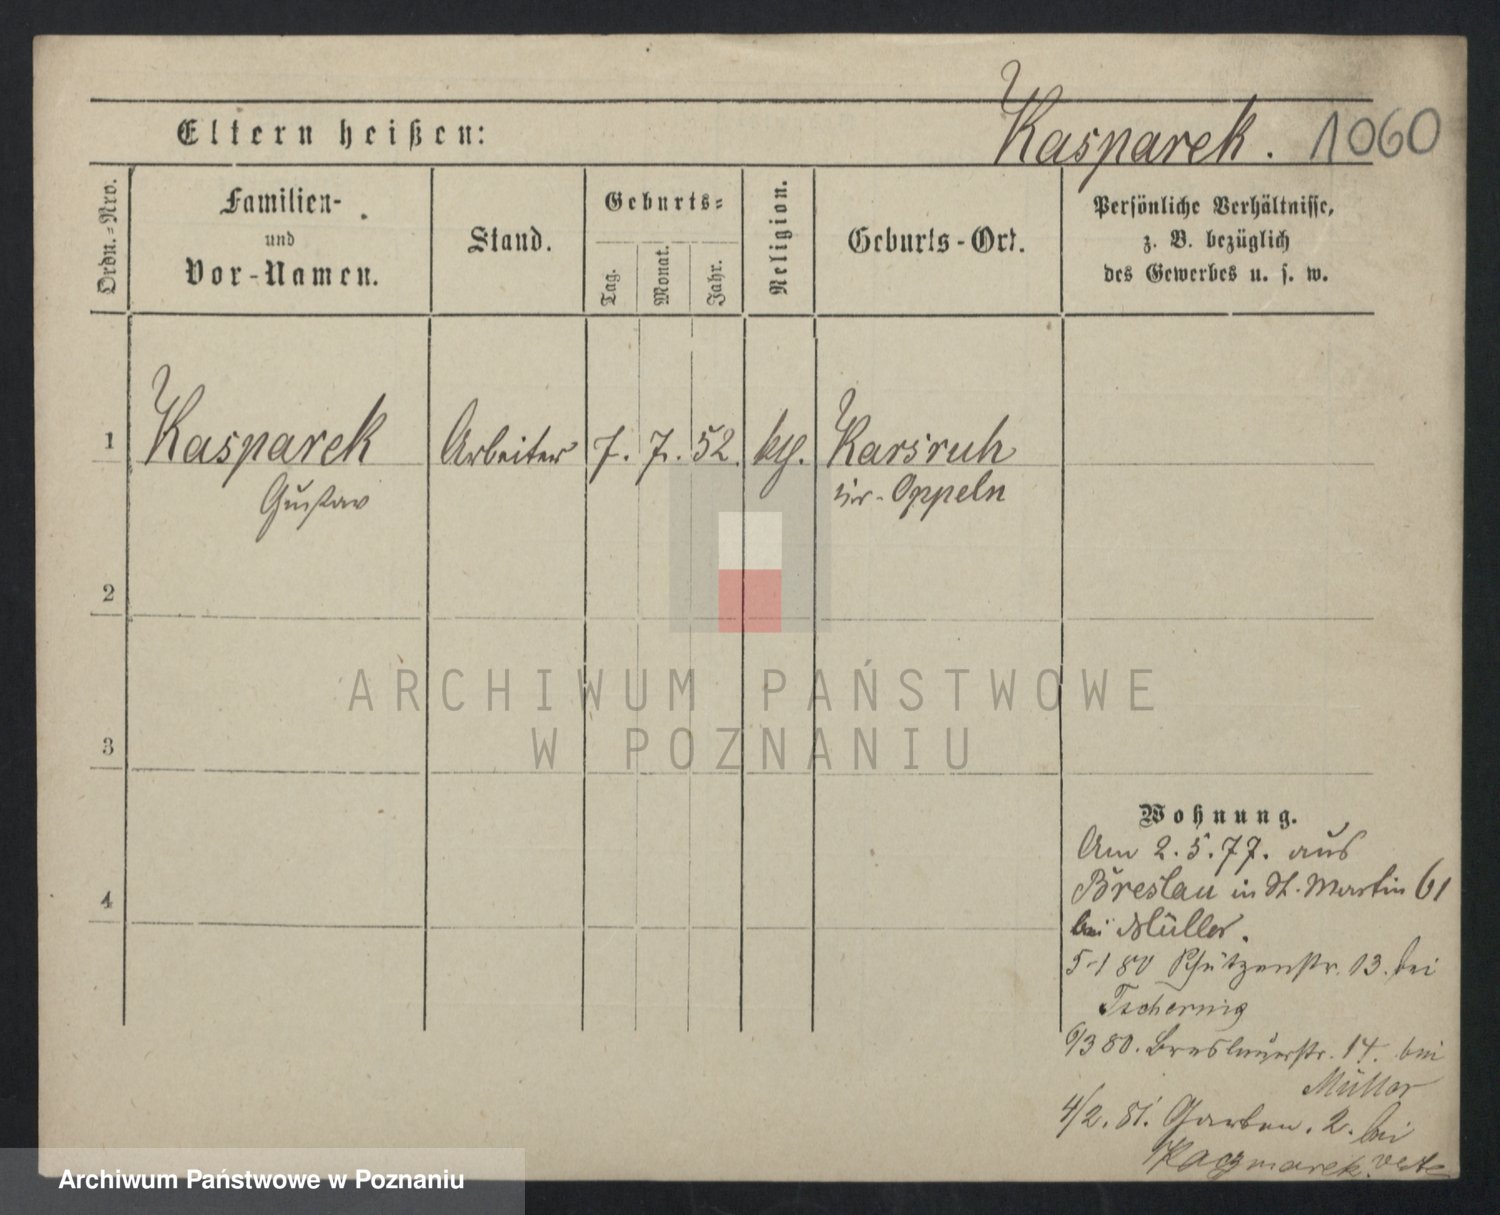 Eltern heißen:
Kasparek. 1060
Ordn.-Nro.
Familien-
und
Vor-Namen.
Stand.
Geburts-
Tag.
Monat.
Jahr.
Religion.
Geburts-Ort.
Persönliche Verhältnisse,
z. B. bezüglich
des Gewerbes u. s. w.
1 Kasparek Arbeiter 7. 7. 52. Karsruh
Gustav Oppeln
2
3
4
Wohnung.
Am 2. 5. 77. aus
Breslau in St. Martin 61
bei Müller.
5-1 80 Schützenstr. 13. bei
Tschernig
6/3 80. Breslauerstr. 14. bei
Müller
4/2. 81. Garten. 2. bei
Kaczmarek
ARCHIWUM PAŃSTWOWE
W POZNANIU
Archiwum Państwowe w Poznaniu